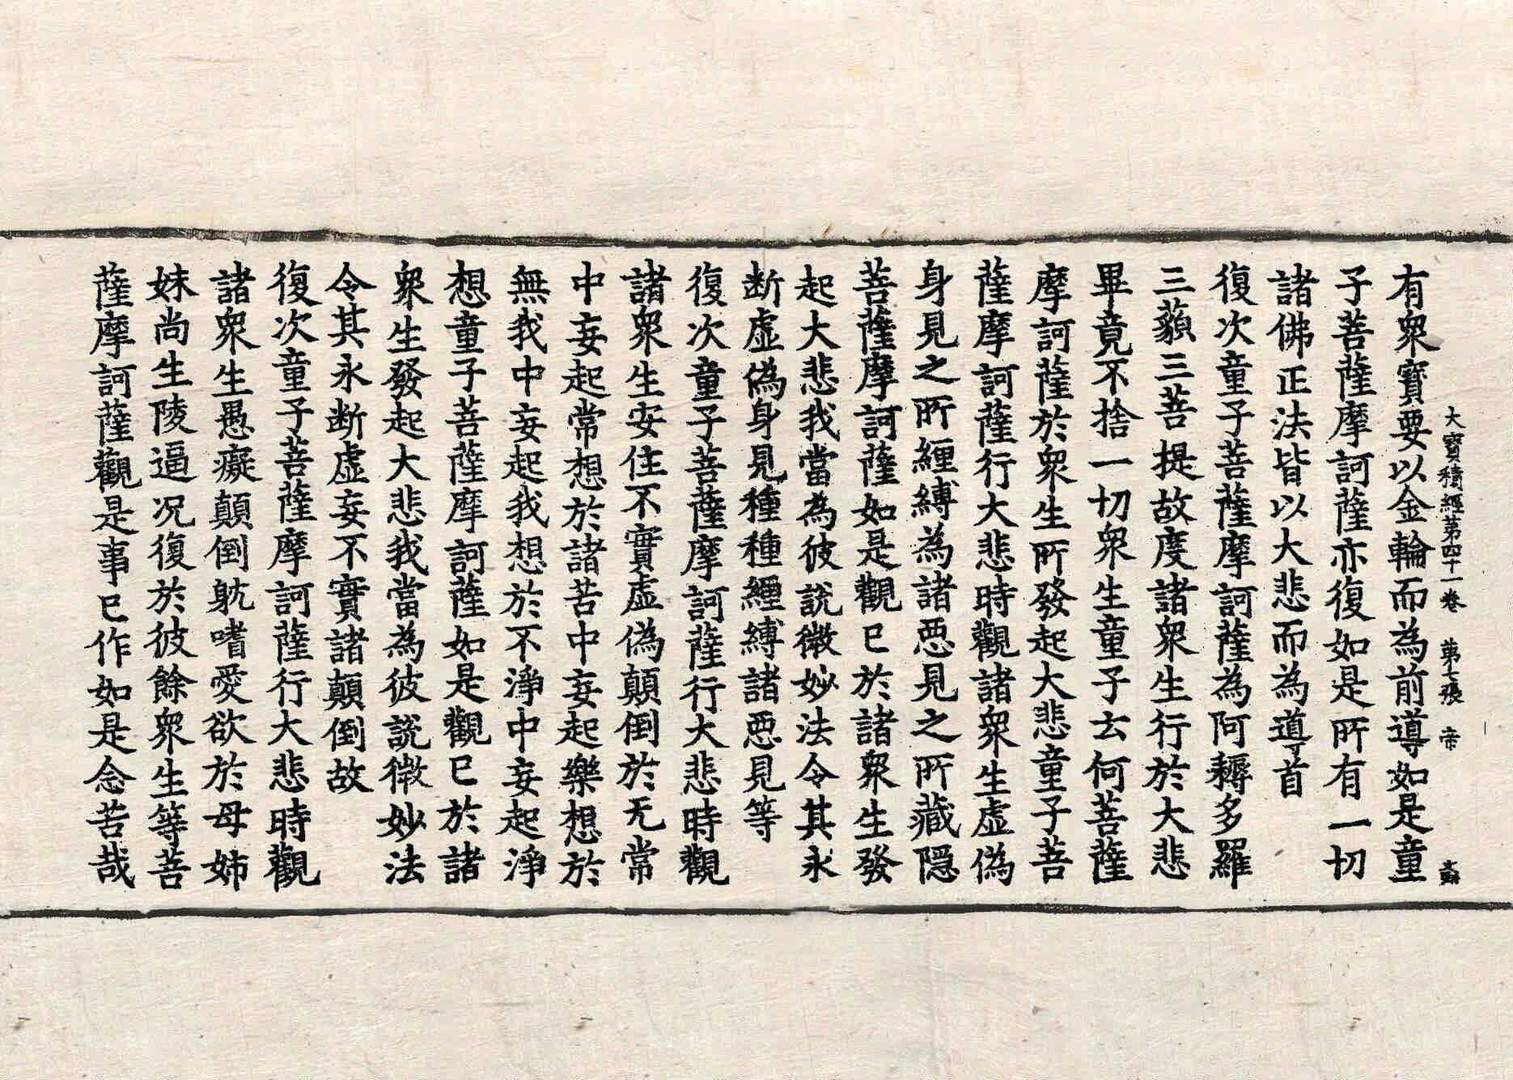 大寶積經第四十一卷　第七張　帝
有衆寶要以金輪而為前導如是童
子菩薩摩訶薩亦復如是所有一切
諸佛正法皆以大悲而為道首
復次童子菩薩摩訶薩為阿耨多羅
三藐三菩提故度諸衆生行於大悲
畢竟不捨一切衆生童子云何菩薩
摩訶薩於衆生所發起大悲童子菩
薩摩訶薩行大悲時觀諸衆生虛偽
身見之所纏縛為諸惡見之所藏隱
菩薩摩訶薩如是觀已於諸衆生發
起大悲我當為彼說微妙法令其永
断虛偽身見種種纏縛諸惡見等
復次童子菩薩摩訶薩行大悲時觀
諸衆生安住不實虛偽顛倒於无常
中妄起常想於諸苦中妄起樂想於
無我中妄起我想於不淨中妄起淨
想童子菩薩摩訶薩如是觀已於諸
衆生發起大悲我當為彼說微妙法
令其永断虛妄不實諸顛倒故
復次童子菩薩摩訶薩行大悲時觀
諸衆生愚癡顛倒躭嗜愛欲於母姊
妹尚生陵逼况復於彼餘衆生等菩
薩摩訶薩觀是事已作如是念苦哉